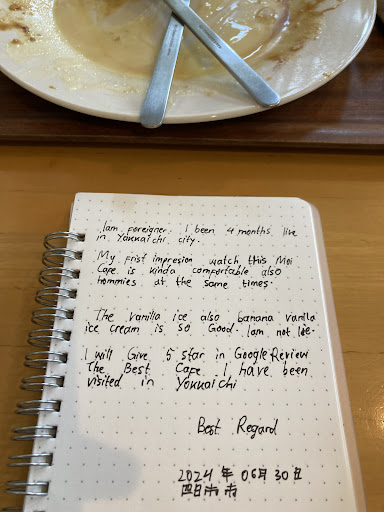 Iam foreigner. I been 4 months live
in Yokkaichi city.
My frist impresion watch this Moi
Cape is kinda comfortable also
hommies at the same times.
The vanilla ice also banana vanilla
ice cream is so Good. Iam not lie.
I will Give 5 star in Google Review
The Best Cape I have been
visited in Yokkaichi
Best Regard
2024 年 06月 30日
四日市 市